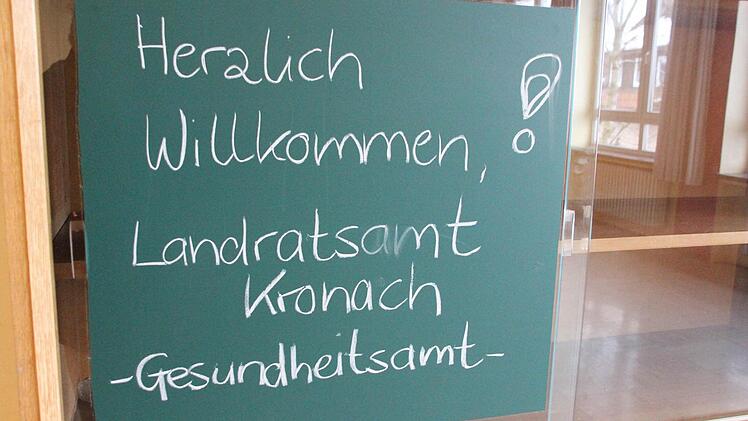 Herzlich
Willkommen, !
Landratsamt
Kronach
-Gesundheitsamt-